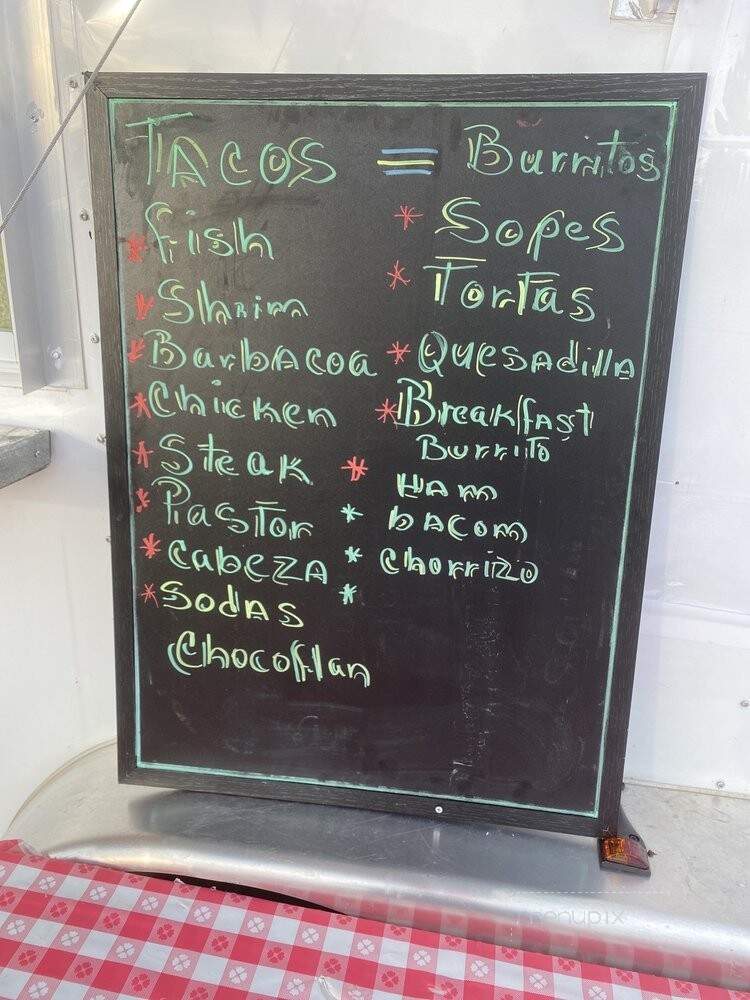 TACOS = Burritos
* fish
* Shrim
* BarbACOA
* Chicken
* Steak
* PasTor
* CabEZA
* SodAS
Chocoflan
* SopeS
* TorTas
* QuesAdillA
* BreakfAsT
BurriTo
* HAm
* bACom
* chorrizo
*